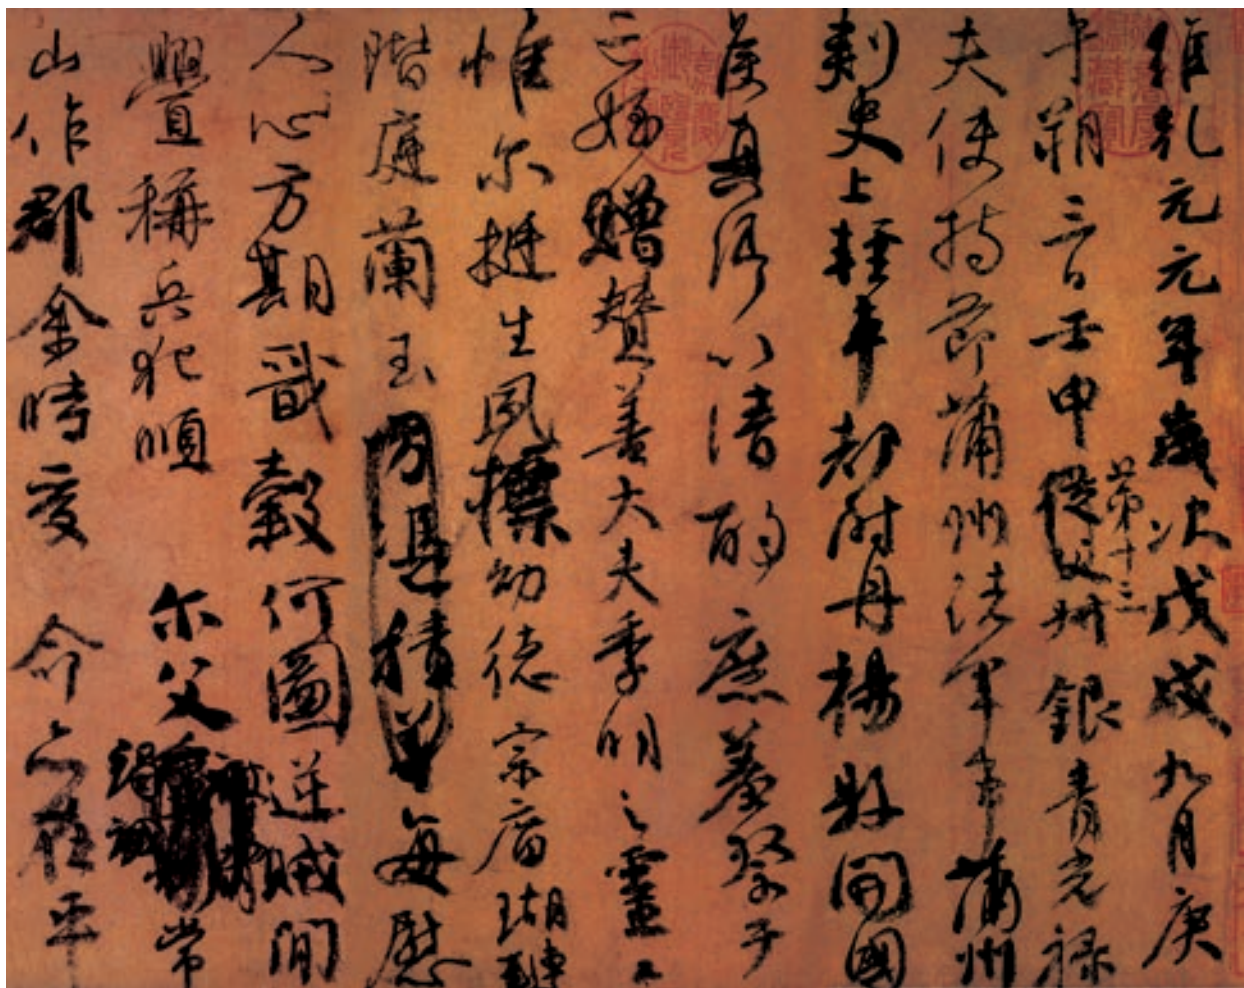 維乾元元年歲次戊戌九月庚
午朔三日壬申第十三從父叔銀青光祿
夫使持節蒲州諸軍事蒲州
刺史上輕車都尉丹楊縣開國
侯真卿以清酌庶羞祭于
亡姪贈贊善大夫季明之靈
惟爾挺生夙標幼德宗廟瑚璉
階庭蘭玉方憑積善每慰
人心方期戩穀何圖逆賊閒
釁稱兵犯順爾父竭誠常
山作郡余時受命亦在平